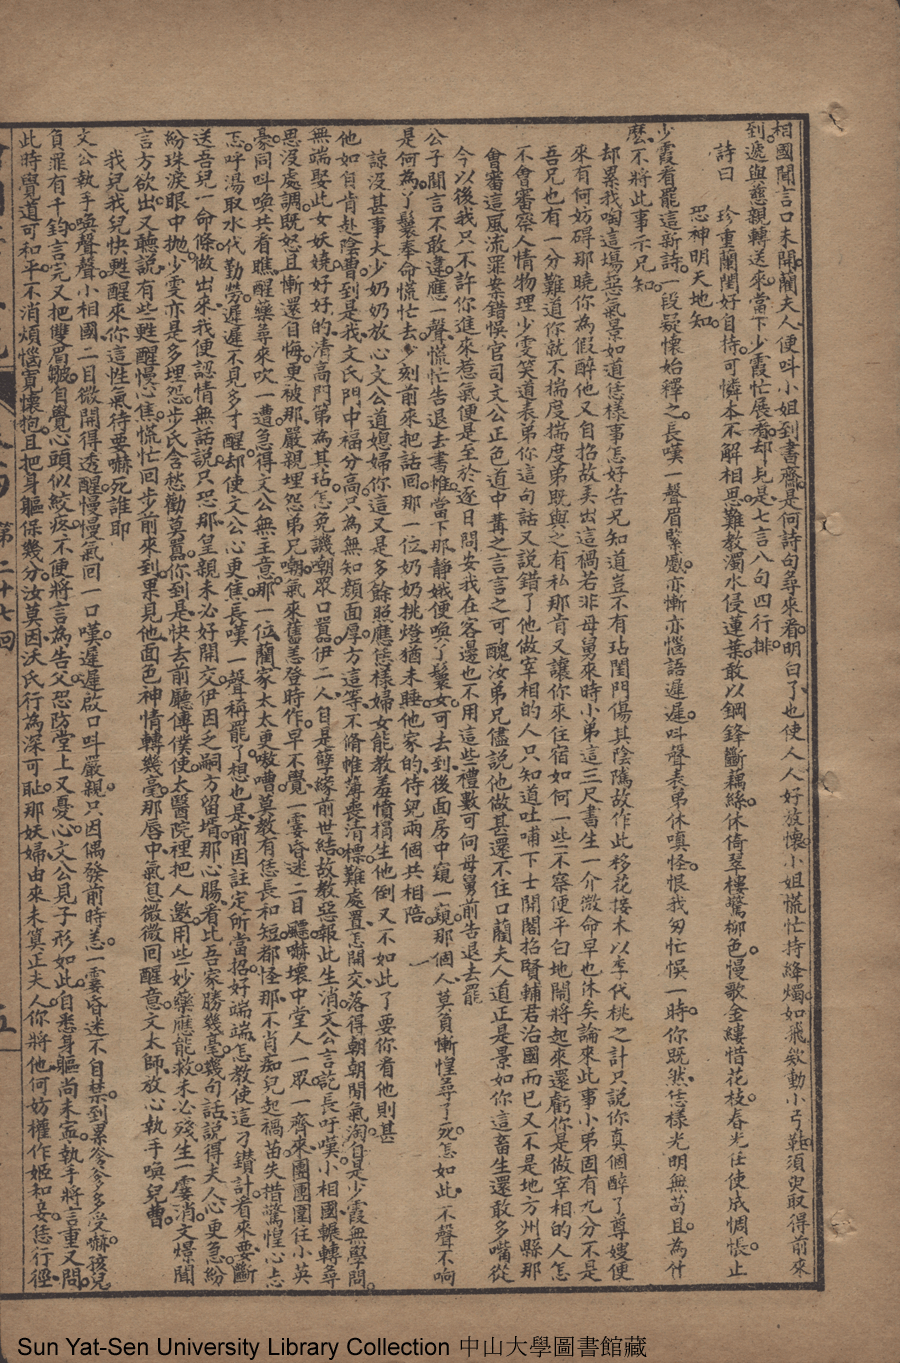 相國聞言口未開藺夫人便呌小姐到書齋是何詩句尋來看明白了也使人人好放懷小姐慌忙持絳燭如飛欸動小弓鞋須臾取得前來
到遞與慈親轉送來當下少霞忙展看却見是七言八句四行排
詩曰 珍重蘭閨好自持可憐本不解相思難教濁水侵蓮葉敢以鋼鋒斷藕絲休倚翠樓驚柳色慢歌金縷惜花枝春光任使成惆悵止
恐神明天地知
少霞看罷這新詩一段疑懷始釋之長嘆一聲眉緊蹙亦慚亦惱語遲遲呌聲表弟休嗔怪恨我匆忙悞一時你既然恁樣光明無苟且為什
麽不將此事示兄知
却累我啕這場惡氣景如道恁樣事怎好告兄知道豈不有玷閨門傷其陰隲故作此移花接木以李代桃之計只說你真個醉了尊嫂便
來有何妨碍那曉你為假醉他又自招故弄出這禍若非母舅來時小弟這三尺書生一介微命早也休矣論來此事小弟固有九分不是
吾兄也有一分難道你就不揣度揣度弟既與之有私那肯又讓你來住宿如何一些不察便平白地鬧將起來還虧你是做宰相的人怎
不會審察人情物理少雯笑道表弟你這句話又說錯了他做宰相的人只知道吐哺下士開閣招賢輔君治國而已又不是地方州縣那
會審這風流罪案錯悞官司文公正色道中冓之言言之可醜汝弟兄儘說他做甚還不住口藺夫人道正是景如你這畜生還敢多嘴從
今以後我只不許你進來惹氣便是至於逐日問安我在客邊也不用這些禮數可向母舅前告退去罷
公子聞言不敢違應一聲慌忙告退去書帷當下那靜娥便喚了鬟女可去到後面房中窺一窺那個人莫負慚惶尋了死怎如此不聲不响
是何為丫鬟奉命慌忙去少刻前來把話回那一位奶奶挑燈猶未睡他家的侍兒兩個共相陪
諒沒甚事大少奶奶放心文公道媳婦你這又是多餘照應恁樣婦女能教羞憤捐生他倒又不如此了要你看他則甚
他如自肯赴陰曹到是我文氏門中福分高只為無知顏面厚方這等不脩帷簿喪清標難處置怎開交落得朝朝閒氣淘自是少霞無學問
無端娶此女妖嬈好好的清高門第為其玷怎免譏嘲眾口囂伊二人自是孽緣前世結故教惡報此生消文公言訖長吁嘆小相國輾轉尋
思沒處調既怒且慚還自悔更被那嚴親埋怨弟兄嘲氣來舊恙登時作早不覺一霎昏迷二目聽嚇壞中堂人一眾一齊來團團圍住小英
豪同呌喚共看瞧醒藥尋來吹一遭急得文公無主意那一位藺家太太更嗷嘈莫教有恁長和短都怪那不肖痴兒起禍苗失措驚惶心忐
忑呼湯取水代勤勞遲遲不見多才醒却使文公心更焦長嘆一聲稱罷了想也是前因註定所當招好端端怎教使這刁鑽計看來要斷
送吾兒一命條做出來我便認情無話說只恐那皇親未必好開交伊因乏嗣方留壻那心腸看此吾家勝幾毫幾句話說得夫人心更急紛
紛珠淚眼中拋少雯亦是多埋怨步氏含愁勸莫囂你到是快去前廳傳僕使太醫院裡把人邀用些妙藥應能救未必殘生一霎消文憬聞
言方欲出又聽說有些甦醒慢心焦慌忙回步前來到果見他面色神情轉幾毫那唇中氣息微微回醒意文太師放心執手喚兒曹
我兒我兒快甦醒來你這性氣待要嚇死誰耶
文公執手喚聲聲小相國二目微開得透醒慢慢氣回一口嘆遲遲啟口呌嚴親只因偶發前時恙一霎昏迷不自禁到累爷爷多受嚇孩兒
負罪有千鈞言完又把雙眉皺自覺心頭似絞疼不便將言為告父恐防堂上又憂心文公見子形如此自悉身軀尚未寧執手將言重又問
此時覺道可和平不消煩惱寬懷抱且把身軀保幾分汝莫因沃氏行為深可恥那妖婦由來未算正夫人你將他何妨權作姬和妾恁行徑
第二十七回
五
Sun Yat-Sen University Library Collection 中山大學圖書館藏